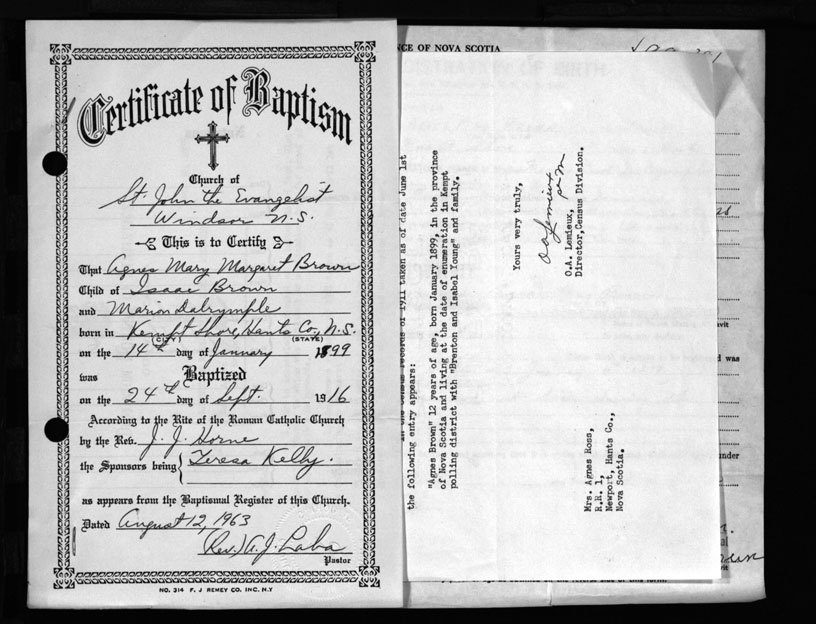 Certificate of Baptism
Church of
St. John the Evangelist
Windsor N.S.
This is to Certify
That Agnes Mary Margaret Brown
Child of Isaac Brown
and Marion Dalrymple
born in Kempt Shore, Hants Co., N.S.
(CITY) (STATE)
on the 14th day of January 1899
was Baptized
on the 24th day of Sept. 1916
According to the Rite of the Roman Catholic Church
by the Rev. J. J. Horne
the Sponsors being Teresa Kelly.
as appears from the Baptismal Register of this Church.
Dated August 12, 1963
(Rev.) A. J. Laba
Pastor
NO. 314 F. J REMEY CO. INC. N.Y
NCE OF NOVA SCOTIA
census records of 1911 taken as of date June 1st
the following entry appears:
"Agnes Brown" 12 years of age, born January 1899, in the province
of Nova Scotia and living at the date of enumeration in Kempt
polling district with "Brenton and Isabel Young" and family.
Yours very truly,
O.A. Lemieux,
Director, Census Division.
Mrs. Agnes Ross,
R.R. 1,
Newport, Hants Co.,
Nova Scotia.
d was
under